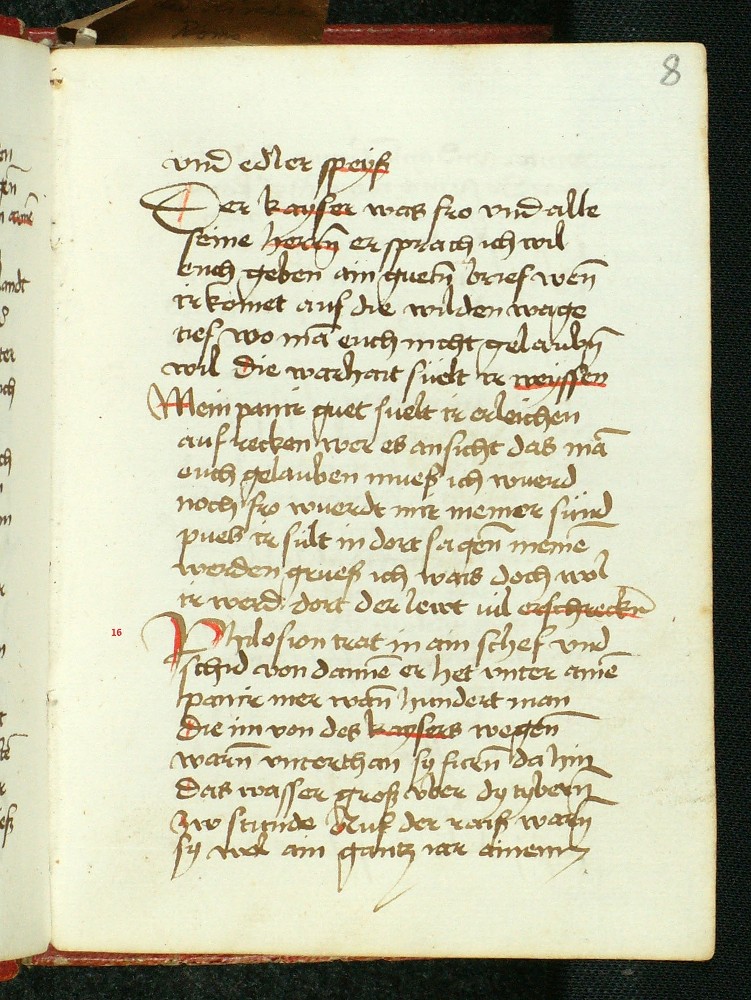 8
vnd edler speyß
Der kayser was fro vnd alle
seine herrn̄ er sprach ich wil
euch geben ain guetn̄ brief wen̄
ir kōmet auf die wilden wage
tief wo mā euch nicht gelaubn̄
wil die warhait suelt ir weyssen
Mein panir guet suelt ir erleichen
auf recken wer es ansicht das mā
euch gelauben mueß ich wuerd
noch fro wuerdt mir meiner sünd
pues ir sült in dort sagen̄ meinē
werden grues ich wais doch wol
ir werd dort der lewt vil erschreckn̄
16
Philosion trat in ain schef vnd
schid von dannē er het vnter ainē
panir mer wan̄ hundert man
die im von des kaysers wegen̄
warn̄ vnterthan sy furn̄ da hin
das wasser groß vber dy tybern̄
zw stunde auf der raiß warn̄
sy wol ain gantz iar ainem